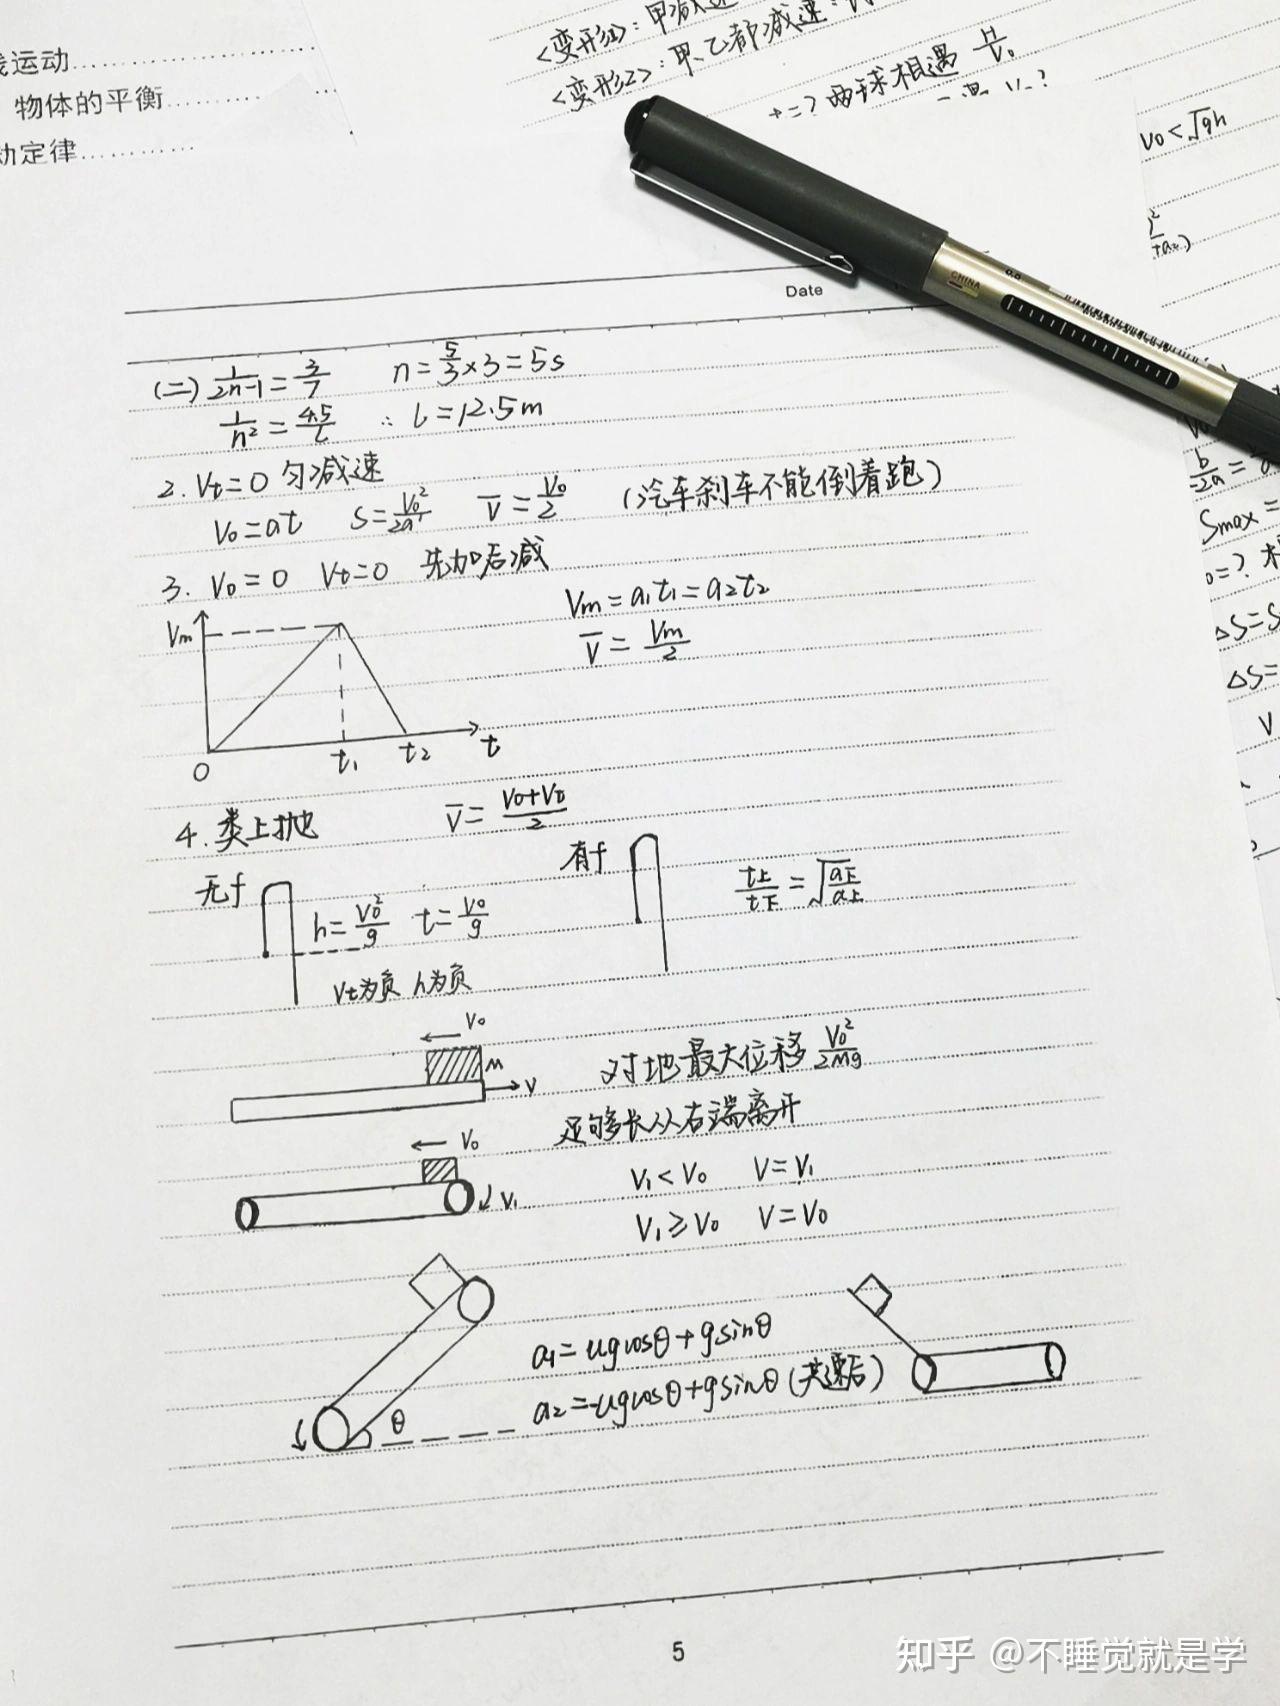 线运动……………
物体的平衡…………
动定律…………
<变形1>: 甲减速
<变形2>: 甲、乙都减速:
t=? 两球相遇 H/v₀
v₀<√gh
Date
CHINA
0.5
(二) 1/(2n-1) = 3/7 n = 5/3 × 3 = 5s
1/n² = 4.5/L ∴ L = 12.5m
2. Vt=0 匀减速
V₀=at S=V₀²/2a V̄=V₀/2 (汽车刹车不能倒着跑)
3. V₀=0 Vt=0 先加后减
Vm=a₁t₁=a₂t₂
V̄=Vm/2
Vm
0 t₁ t₂ t
4. 类上抛 V̄=(V₀+Vt)/2
无f h=V₀²/g t=V₀/g
有f t上/t下=√(a下/a上)
Vt为负 h为负
V₀
M
V
对地最大位移 V₀²/2Mg
足够长从右端离开
V₀
V₁
V₁<V₀ V=V₁
V₁≥V₀ V=V₀
a₁=ugcosθ+gsinθ
a₂=-ugcosθ+gsinθ (共速后)
θ
b/-2a=
Smax=
ΔS=S
ΔS=
V
5
知乎 @不睡觉就是学